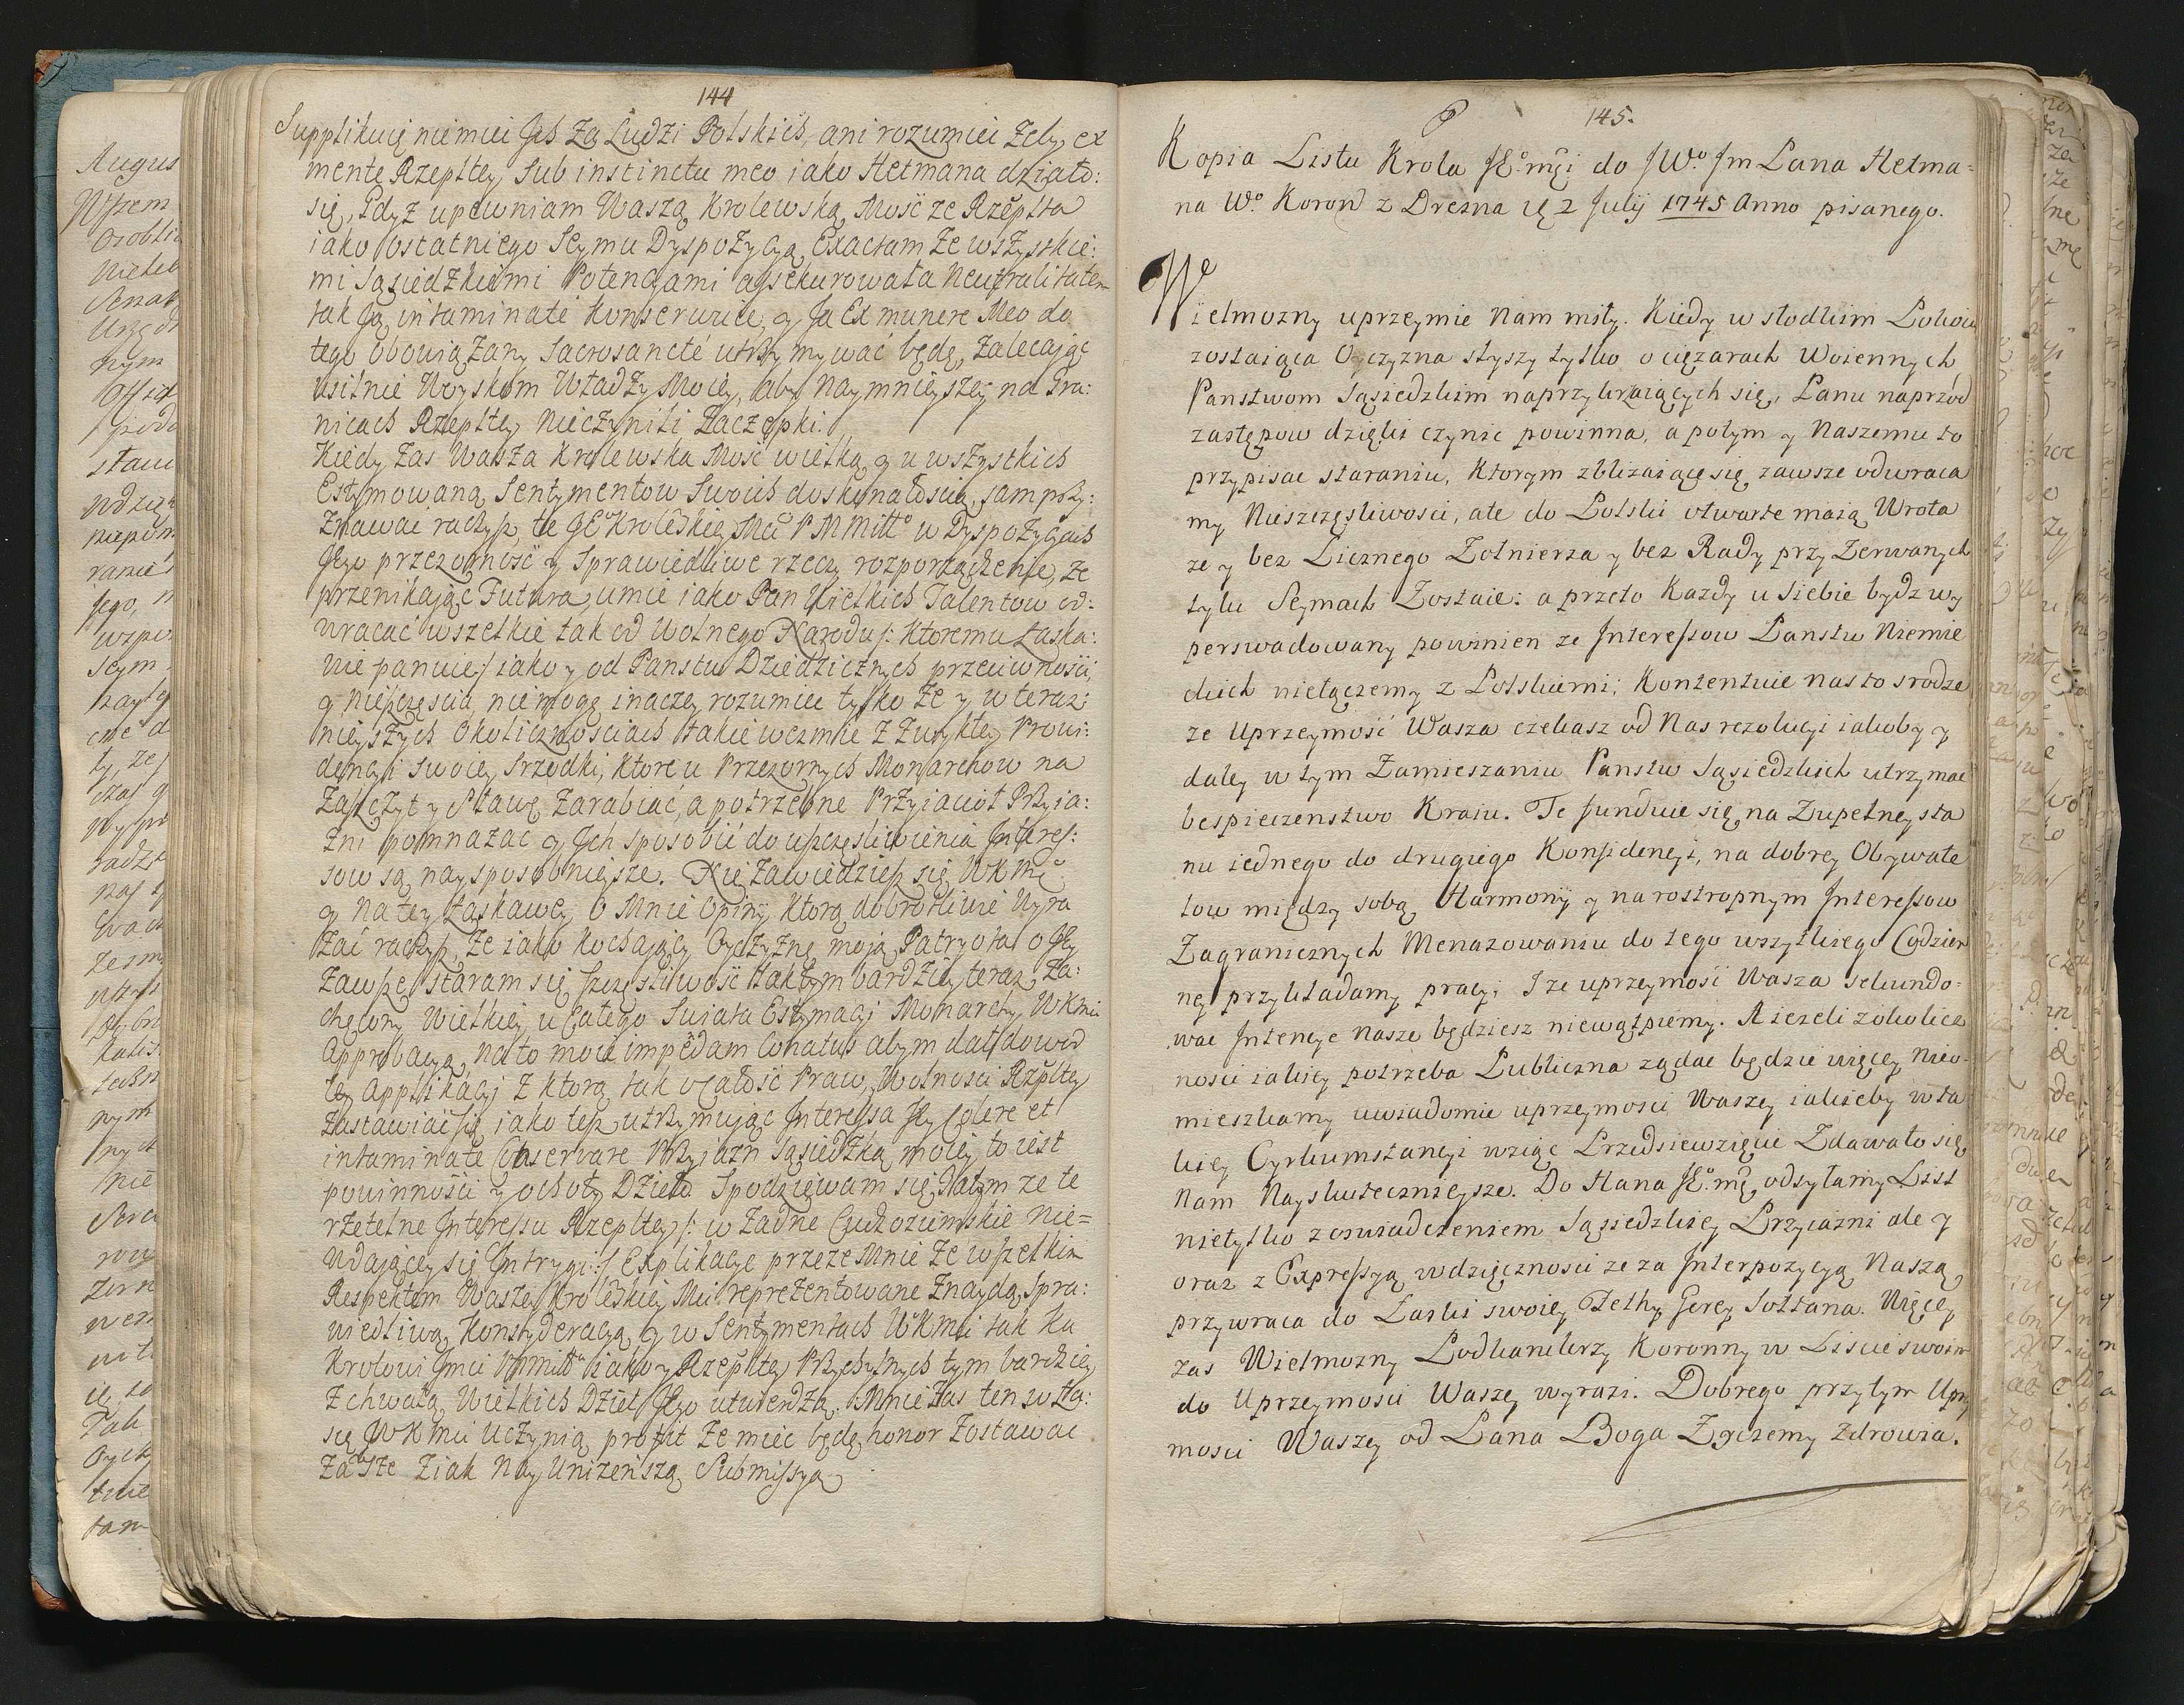 144
Supplikuię niemiei Jch Za Ludzi Polskich, ani rozumiei Zeby ex
mente Rzepltey, Sub instinctu meo iako Hetmana działo:
się, Gdyż upewniam Waszą Krolewską Mość ze Rzeplta
iako ostatniego Seymu Dyspozycyą Exactam ze wszystkie:
mi Sąsiedzkiemi Potencyami assekurowała Neutralitatem
tak Ją intaminaté Konserwuie, y Ja Ex munere Meo do
tego obowiązany Sacrosancté utrzymywać będę, Zalecaiąc
usilnie Woyskom Władzy Moiey, aby Naymnieyszey na Gra:
nicach Rzepltey Nieczynili Zaczepki.
Kiedy Zas Wasza Krolewska Mość wielką y u wszystkich
Estymowaną Sentymentow Swoich doskonałoscią, sam przy:
znawac raczysz, te JE Krolewskiey Mci PNMiłłº w Dyspozycyach
Jego przezorność y Sprawiedliwe rzeczy rozporządzenie, ze
przenikaiąc Futura, umie iako Pan Wielkich Talentow od:
wracać wszelkie tak od Wolnego Narodu /: Ktoremu Łaska:
wie panuie:/ iako y od Panstw Dziedzicznych przeciwnosci,
y Nieszczęscia, niemogę inaczey rozumiec tylko Ze y w teraz:
nieyszych Okolicznościach takie wezmie z Zwykłey Prowi:
dencyi swoiey Srzodki, ktore u Przezornych Monarchow na
Zaszczyt y Sławę Zarabiać, a potrzebne Przyiacioł Przyia:
zni pomnazac y Jch sposobić do uszczęsliwienia Jnteres:
sow są naysposobnieysze. Nie Zawiedziesz się WKMć
y na tey łaskawey o Mnie Opinij, ktorą dobrotliwie Wyra
zać raczysz, Ze iako Kochaiący Oyczyznę moią Patryota o Jey
Zawsze staram się szczęsliwość tak tym bardziey teraz Za:
chęcony Wielkiey u Całego Swiata Estymacyi Monarchy WKMci
Approbacyą, na to moie impêdam Conatus abym dał dowod
tey Applikacyi z ktorą tak o Całość Praw, Wolnosci Rzpltey
Zastawiać się iako tesz utrzymuiąc Jnteressa Jey Colere et
intaminaté Observare Przyiazn Sąsiedzką moiey to iest
powinności y ochoty Dzieło. Spodziewam się Zatym ze te
rzetelne Jnteressu Rzepltey /: w Zadne Cudzoziemskie Nie=
wdaiącey się Jntrygi:/ Explikacye przeze Mnie Ze wszelkim
Respektem Waszey Krolewskiey Mci reprezentowane Znaydą Spra:
wiedliwą Konsyderacyą, y w Sentymentach WKMci tak ku
Krolowi Jmci PNMiłłº iako y Rzepltey Przychylnych tym bardziey
Z chwałą Wielkich Dzieł Jego utwierdzą. Mnie Zas ten w Ła:
się WKMci Uczynią profit Ze miec będę honor Zostawac
Zawsze Ziak Nay Unizenszą Submissyą
145.
Kopia Listu Krola JEº.mći do JWº. Jm Pana Hetma=
na Wº. Koron z Drezna d 2 Julij 1745 Anno pisanego.
Wielmozny uprzeymie Nam miły. Kiedy w słodkim Pokoiu
zostaiąca Oyczyzna słyszy tylko o ciężarach Woiennych
Panstwom Sąsiedzkim naprzykrzaiących się, Panu naprzód
zastępow dzięki czynic powinna, a potym y Naszemu to
przypisac staraniu, Ktorym zbliżaiące się zawsze odwraca
my Nieszczęsliwosci, ale do Polski otwarte maią Wrota
ze y bez Licznego Zołnierza y bez Rady przy Zerwanych
tylu Seymach Zostaie: a przeto Kazdy u Siebie bydz wy
perswadowany powinien ze Jnteressow Panstw Niemie
ckich niełączemy z Polskiemi; Kontentuie nas to srodze
ze Uprzeymość Wasza czekasz od Nas rezolucyi iakoby y
daley w tym Zamieszaniu Panstw Sąsiedzkich utrzymac
bespieczenstwo Kraiu. Te funduie się na Zupełney sta
nu iednego do drugiego Konfidencyi, na dobrey Obywate
low między sobą Harmonij y na rostropnym Jnteressow
Zagranicznych Menazowaniu do tego wszytkiego Codzien
ney przykładamy pracy; I ze uprzeymość Wasza sekundo=
wac Jntencye Nasze będziesz niewątpiemy. A iezeli z okolicz
ności iakiey potrzeba Publiczna ządac będzie więcey Nieo=
mieszkamy uwiadomic uprzeymosci Waszey iakieby w ta
kiey Cyrkumstancyi wziąc Przedsiewzięcie Zdawało się
Nam Nayskutecznieysze. Do Hana JEº.mć odsyłamy List
nietylko z oswiadczeniem Sąsiedzkiey Przyiazni ale y
oraz z Expressyą wdzięcznosci ze za Jnterpozycyą Naszą
przywraca do Łaski swoiey Fethy Gerey Sołtana. Więcey
zas Wielmozny Podkanclerzy Koronny w Liscie swoim
do Uprzeymosci Waszey wyrazi. Dobrego przytym Uprzey
mosci Waszey od Pana Boga Zyczemy Zdrowia.